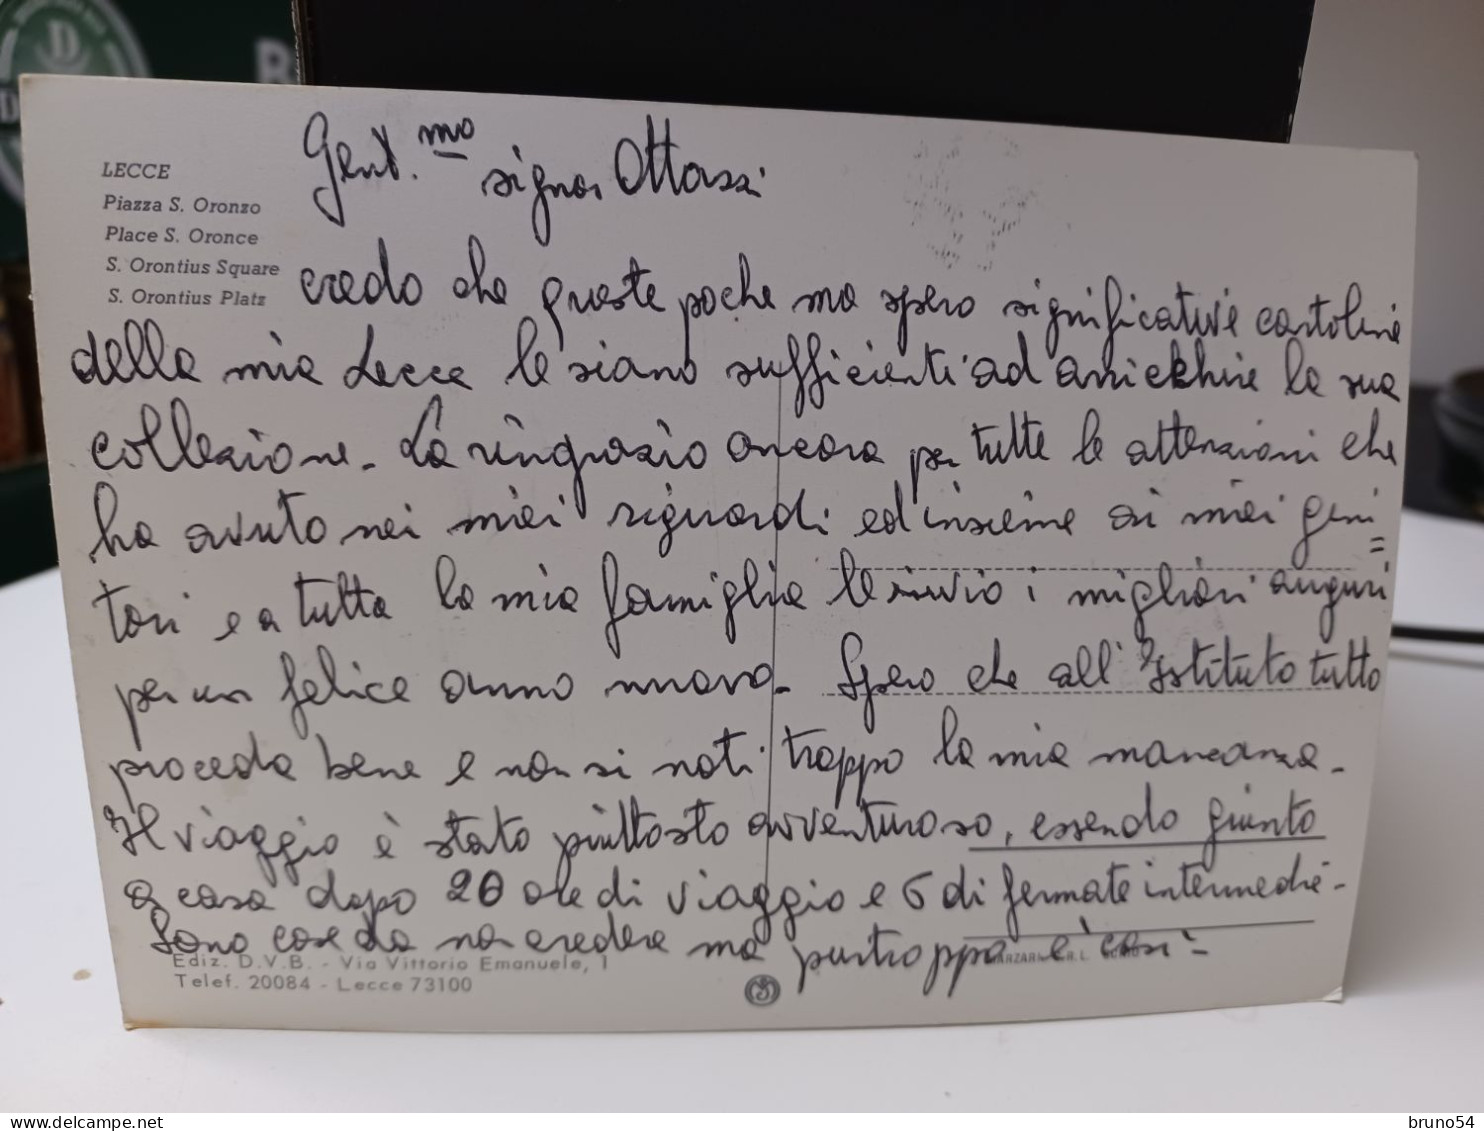 LECCE
Piazza S. Oronzo
Place S. Oronce
S. Orontius Square
S. Orontius Platz
Gent.mo signor Ottassi
credo che queste poche ma spero significative cartoline
della mia Lecce le siano sufficienti ad arricchire la sua
collezione. La ringrazio ancora per tutte le attenzioni che
ha avuto nei miei riguardi ed insieme ai miei geni=
tori e a tutta la mia famiglia le invio i migliori auguri
per un felice anno nuovo. Spero che all'Istituto tutto
proceda bene e non si noti troppo la mia mancanza.
Il viaggio è stato piuttosto avventuroso, essendo giunto
a casa dopo 20 ore di viaggio e 6 di fermate intermedie.
Sono cose da non credere ma purtroppo è così.
Ediz. D.V.B. - Via Vittorio Emanuele, 1
Telef. 20084 - Lecce 73100
delcampe.net
bruno54